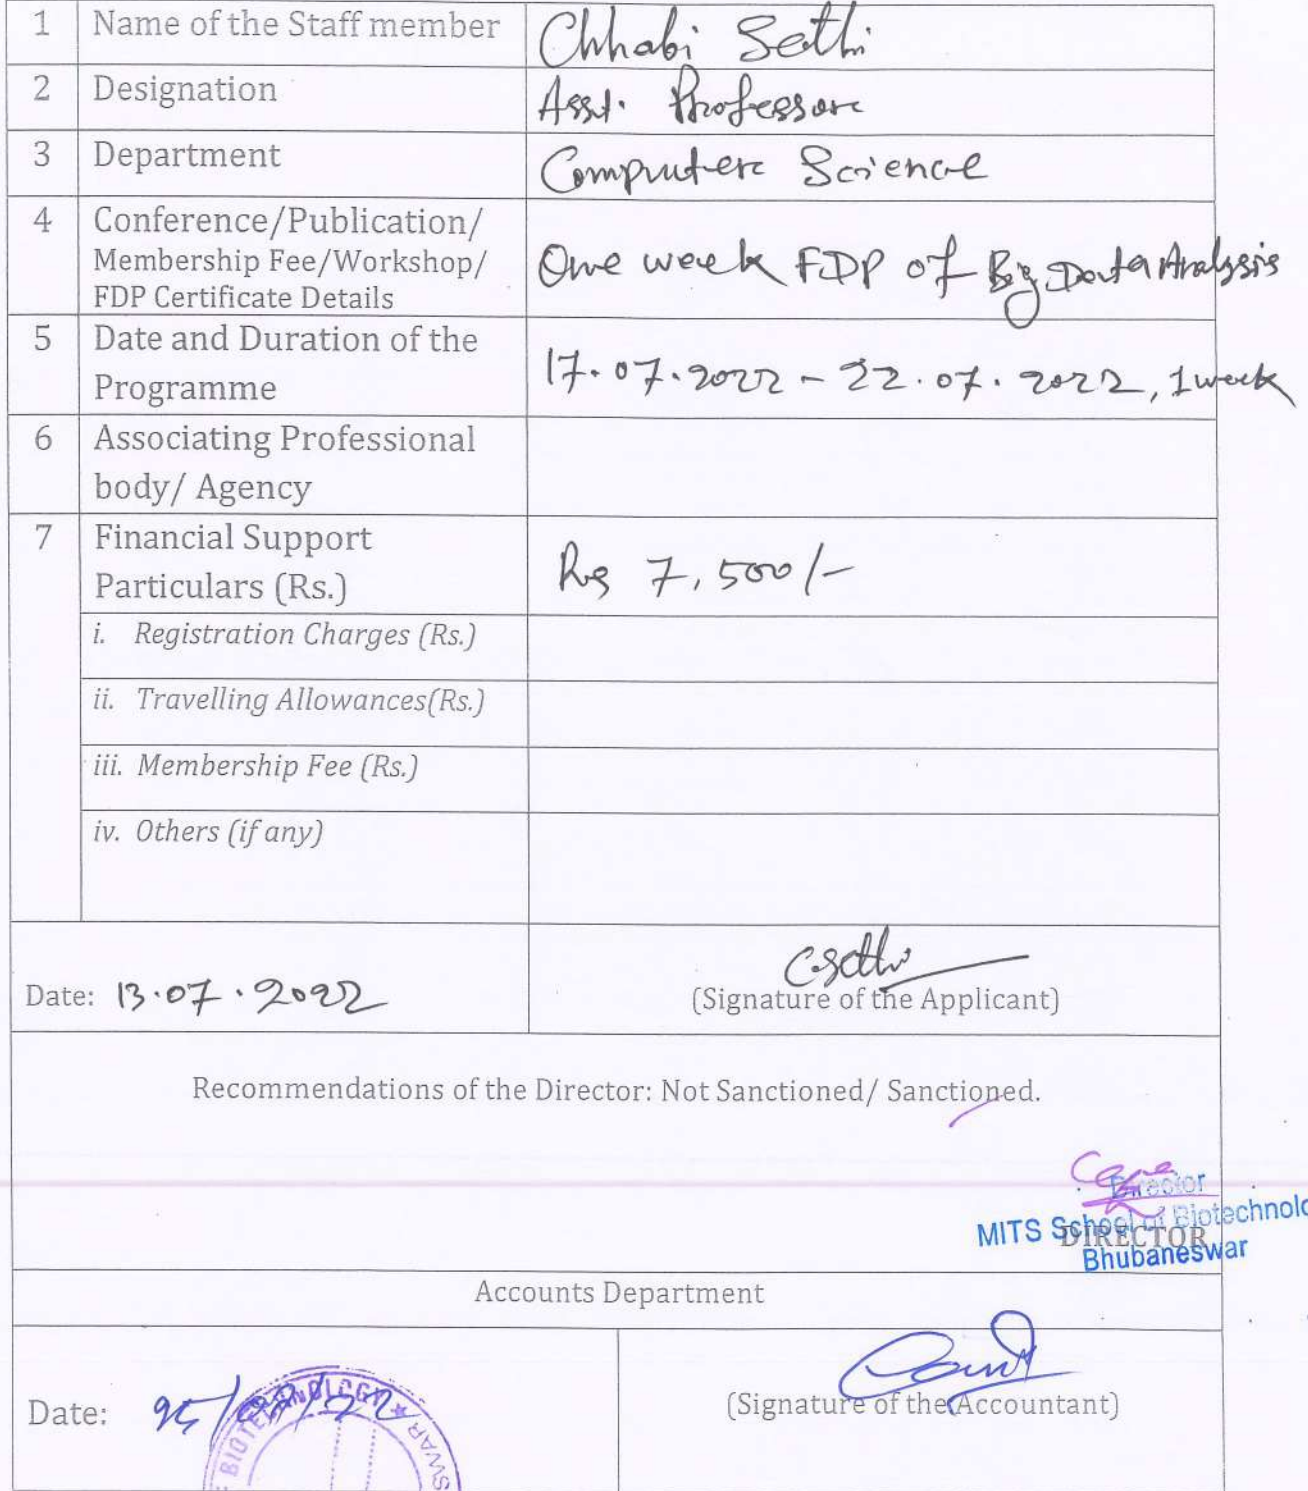 1 Name of the Staff member Chhabi Sethi
2 Designation Asst. Professor
3 Department Computer Science
4 Conference/Publication/
Membership Fee/Workshop/ One week FDP of Big Data Analysis
FDP Certificate Details
5 Date and Duration of the
Programme 17.07.2022 - 22.07.2022, 1 week
6 Associating Professional
body/ Agency
7 Financial Support
Particulars (Rs.) Rs 7,500/-
i. Registration Charges (Rs.)
ii. Travelling Allowances(Rs.)
iii. Membership Fee (Rs.)
iv. Others (if any)
CSethi
Date: 13.07.2022 (Signature of the Applicant)
Recommendations of the Director: Not Sanctioned/ Sanctioned.
Director
MITS School of Biotechnolo
DIRECTOR
Bhubaneswar
Accounts Department
Date: (Signature of the Accountant)